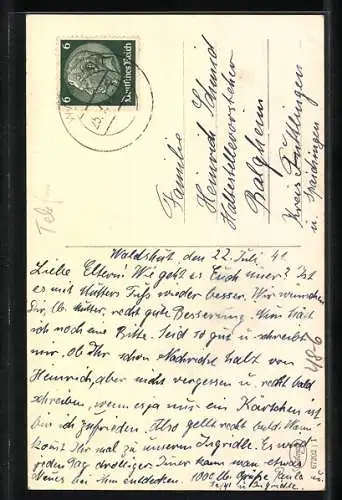 6 Deutsches Reich 6
Familie
Heinrich Schmid
Haltestellevorsteher
Balgheim
Kreis Tuttlingen
u. Spaichingen
Waldshut, den 22. Juli 41
Liebe Eltern! Wie geht es Euch immer? Ist
es mit Mutters Fuss wieder besser. Wir wünschen
Dir, lb. Mutter, recht gute Besserung. Nun hätt
ich noch eine Bitte. Seid so gut u. schreibt
mir, ob Ihr schon Nachricht habt von
Heinrich, aber nicht vergessen u. recht bald
schreiben, wenn es ja nur ein Kärtchen ist
bin ich zufrieden. Also gellt recht bald. Wann
kommt Ihr mal zu unserem Ingridle. Es wird
jeden Tag drolliger. Immer kann man etwas
Neues bei ihm entdecken. 1000 lb. Grüße Paula u.
u. Ingridle.
486